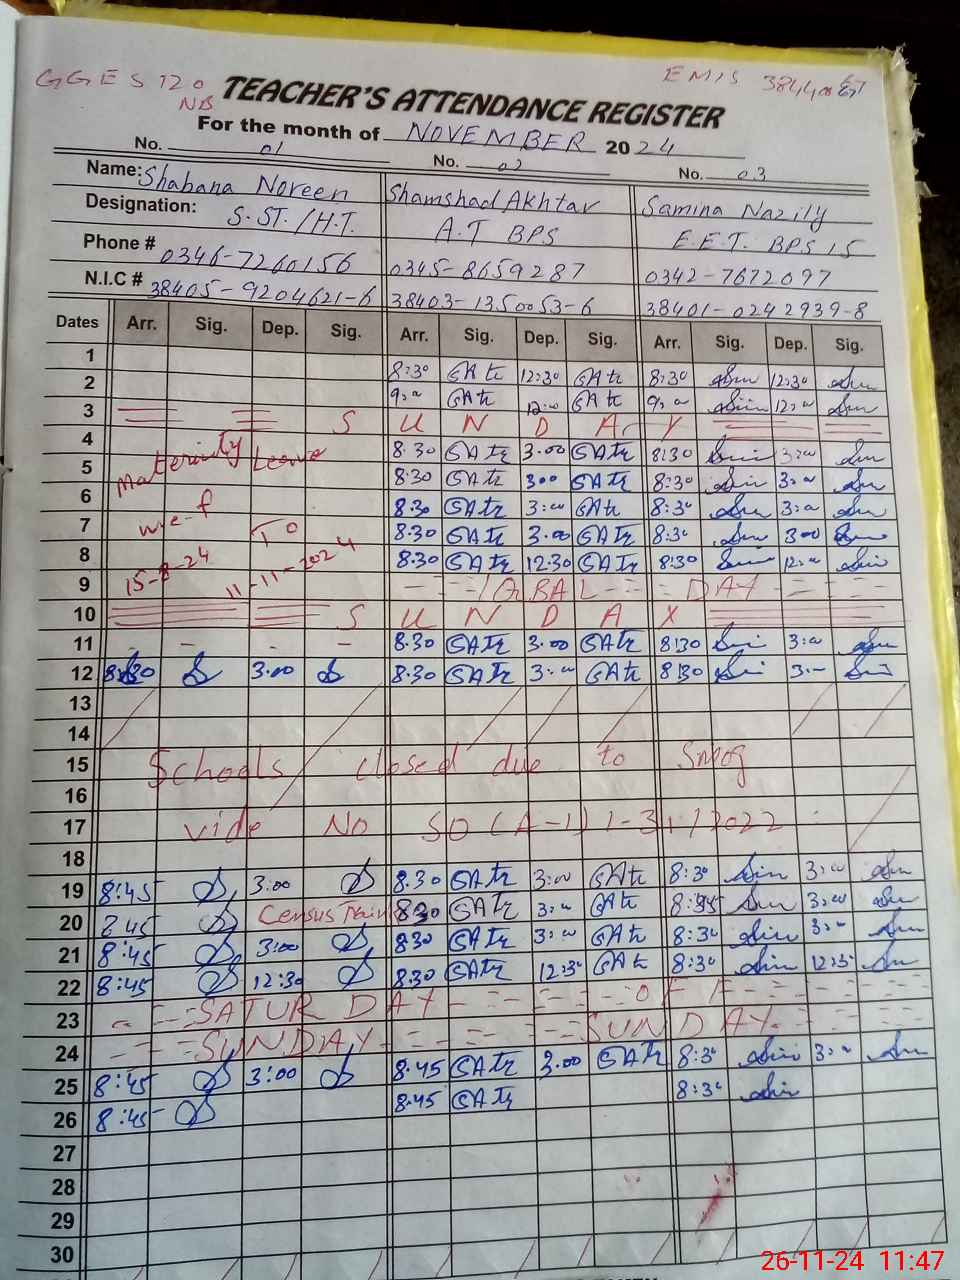 GGES 120 NB
EMIS 38440
TEACHER'S ATTENDANCE REGISTER
For the month of NOVEMBER 2024
No. 01 No. 02 No. 03
Name: Shabana Noreen Shamshad Akhtar Samina Nazily
Designation: S.ST./H.T. A.T BPS E.E.T. BPS 15
Phone # 0346-7260156 0345-8659287 0342-7672097
N.I.C # 38405-9204621-6 38403-1350053-6 38401-0242939-8
Dates Arr. Sig. Dep. Sig. Arr. Sig. Dep. Sig. Arr. Sig. Dep. Sig.
1 8:30 12:30 8:30 12:30
2 9:00 12:00 9:00 12:00
3 S U N D A Y
4 8.30 3.00 8:30 3:00
5 Maternity Leave 8:30 3:00 8:30 3:00
6 8.30 3:00 8:30 3:00
7 w.e.f To 8.30 3.00 8:30 3:00
8 15-8-24 11-11-2024 8.30 12.30 8:30 12:00
9 IQBAL DAY
10 S U N D A Y
11 - - - - 8.30 3.00 8:30 3:00
12 8:30 3.00 8.30 3:00 8:30 3:00
13
14
15 Schools closed due to Smog
16
17 vide No SO (A-1) 1-31/2022
18
19 8:45 3:00 8.30 3:00 8:30 3:00
20 8:45 Census Train 8:30 3:00 8:45 3:00
21 8:45 3:00 8:30 3:00 8:30 3:00
22 8:45 12:30 8.30 12:30 8:30 12:30
23 SATURDAY OFF
24 SUNDAY SUNDAY
25 8:45 3:00 8.45 3.00 8:30 3:00
26 8:45 8.45 8:30
27
28
29
30
26-11-24 11:47